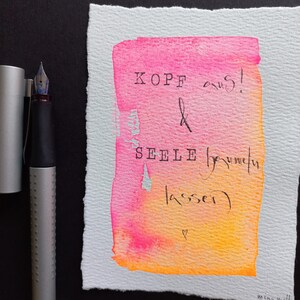 KOPF aus!
&
SEELE baumeln
lassen